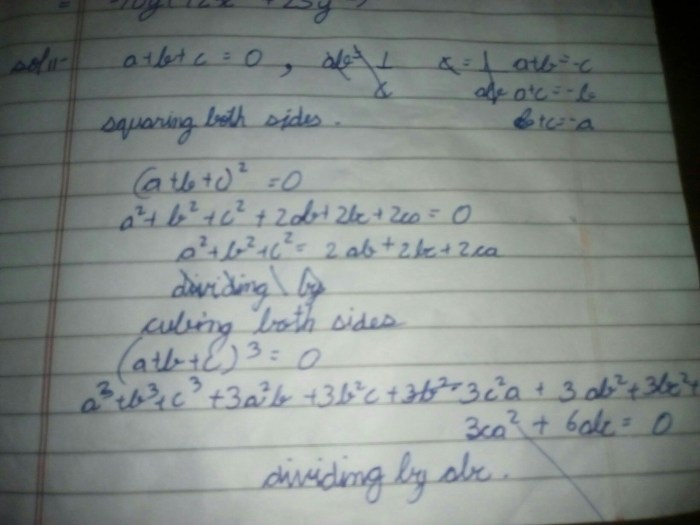 soln- a+b+c = 0, abc = 1 x = 1 a+b=-c
x abc a+c=-b
squaring both sides. b+c=-a
(a+b+c)² = 0
a²+b²+c²+2ab+2bc+2ca = 0
a²+b²+c² = 2ab+2bc+2ca
dividing by
cubing both sides
(a+b+c)³ = 0
a³+b³+c³+3a²b+3b²c+3b² 3c²a + 3ab²+3bc²+
3ca² + 6abc = 0
dividing by abc.